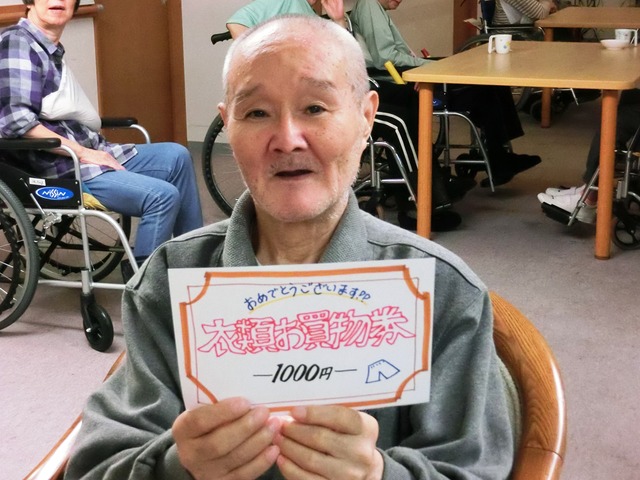 おめでとうございます!!
衣類お買物券
—1000円—
NISSIN